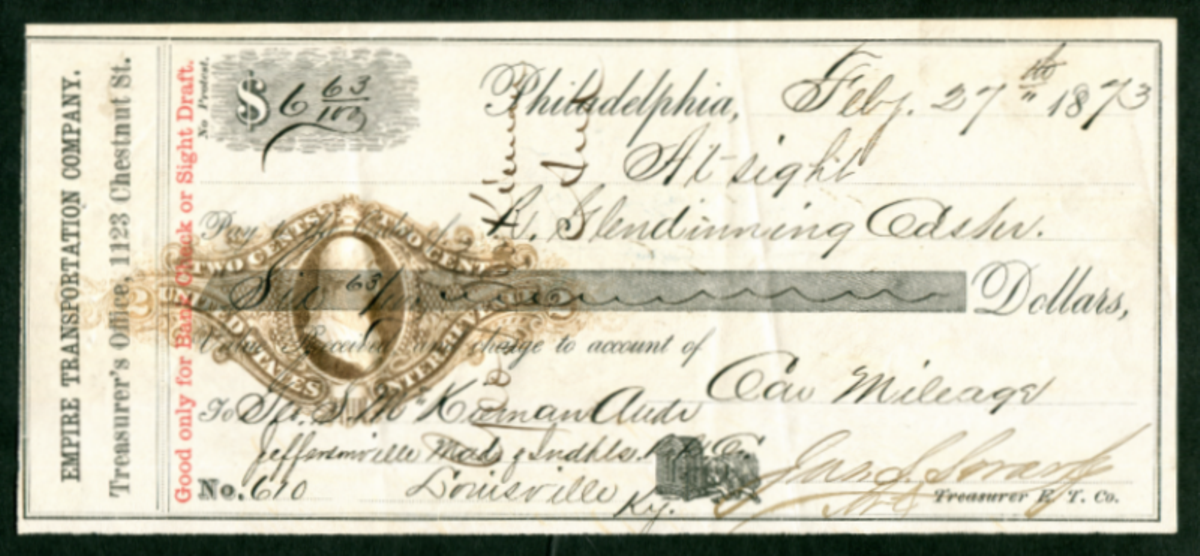 EMPIRE TRANSPORTATION COMPANY.
Treasurer's Office, 1123 Chestnut St.
Good only for Bank Check or Sight Draft.
No Protest.
$ 6 63/100
Philadelphia, Feby. 27th 1873
At sight
Pay to the Order of R. Glendinning Cashr.
TWO CENTS TWO CENTS
Six 63/100 Dollars,
Value Received and charge to account of
UNITED STATES
Car Mileage
To Jas. S. McKiernan Audr
Jeffersonville Mad & Indpls R.R. Co.
No. 610 Louisville Ky.
Treasurer E. T. Co.